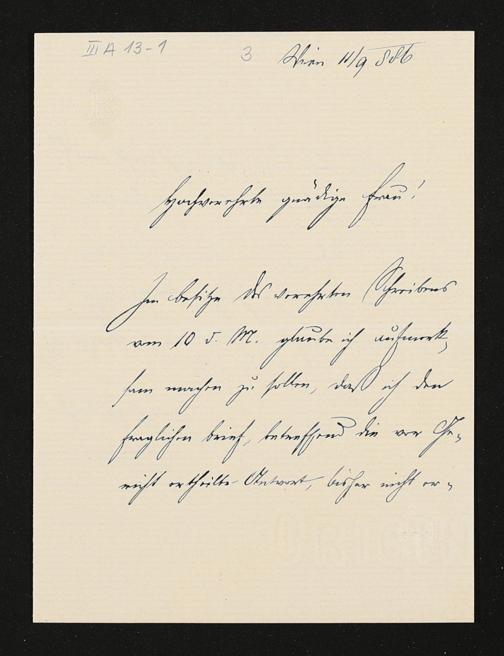 III A 13-1
3
Wien 11/9 886
Hochverehrte gnädige Frau!
Im Besitze des verehrten Schreibens
vom 10 d. M. glaube ich aufmerk-
sam machen zu sollen, daß ich den
fraglichen Brief, betreffend die vor Ge-
richt ertheilte Antwort, bisher nicht er-